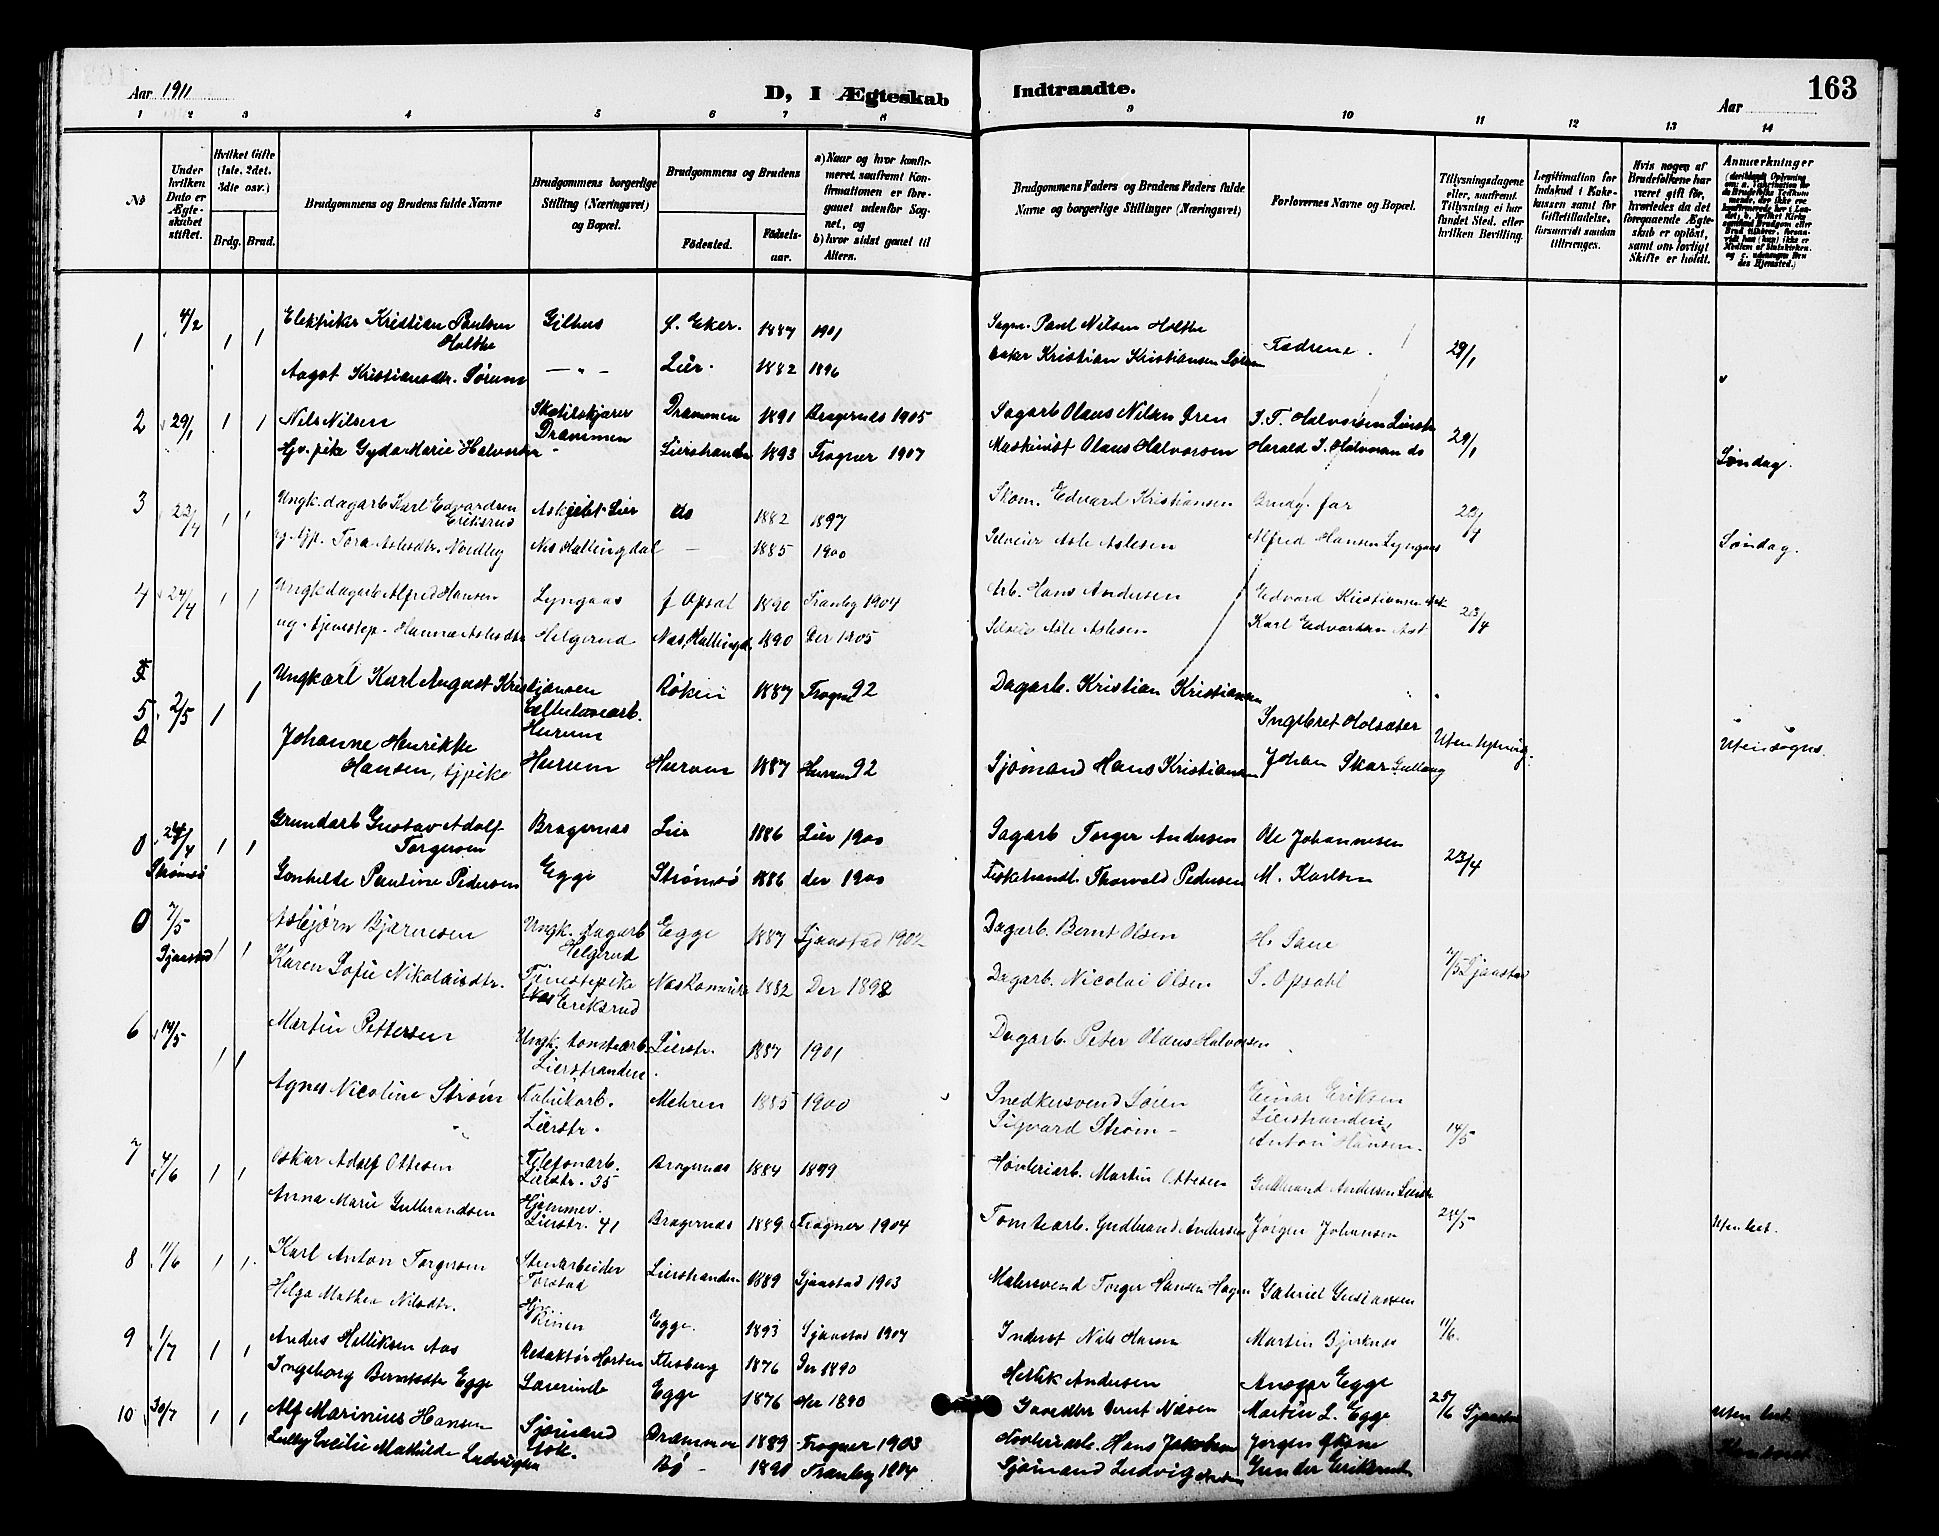 Aar 1911
D, I Ægteskab Indtraadte.
Aar
163
1 2 3 4 5 6 7 8 9 10 11 12 13 14
No
Under hvilken Dato er Ægteskabet stiftet.
Hvilket Gifte (1ste, 2det, 3die osv.)
Brdg. Brud.
Brudgommens og Brudens fulde Navne
Brudgommens borgerlige Stilling (Næringsvei) og Bopæl.
Brudgommens og Brudens
Fødested. Fødselsaar.
a) Naar og hvor konfirmeret, saafremt Konfirmationen er foregaaet udenfor Sognet, og
b) hvor sidst gaaet til Alters.
Brudgommens Faders og Brudens Faders fulde Navne og borgerlige Stillinger (Næringsvei)
Forlovernes Navne og Bopæl.
Tillysningsdagene eller, saafremt Tillysning ei har fundet Sted, efter hvilken Bevilling.
Legitimation for Indskud i Enkekassen samt for Giftetilladelse, forsaavidt saadan tiltrænges.
Hvis nogen af Brudefolkene har været gift før, hvorledes da det foregaaende Ægteskab er opløst, samt om lovligt Skifte er holdt.
Anmærkninger
1 4/2 1 1 Elektriker Kristian Paulsen Holtte Gilhus Ø. Eker. 1887 1901 Sagm. Paul Nilsen Holtte Fædrene. 29/1
Aagot Kristiansdtr. Sørum — " — Lier. 1882 1896 Kristian Kristiansen
2 29/1 1 1 Nils Nilsen Drammen Drammen 1891 Bragernes 1905 Sagarb Olaus Nilsen Halvorsen 29/1
Tjv. pike Gyda Marie Halvorsen " Lierstranden 1893 Frogner 1907 Maskinist Olaus Halvorsen Harald Halvorsen do Søndag.
3 23/4 1 1 Ungk. dagarb Karl Edvardsen Eriksrud Lier do 1882 1897 Skom. Edvard Kristiansen Brudg. far 23/4
og tjp. Tora Aslesdtr. Nordby Nes Hallingdal — 1885 1900 Asle Aslesen Alfred Hansen Lyngaas Søndag.
4 24/4 1 1 Ungk dagarb Alfred Hansen Lyngaas Opsal 1890 Tranby 1904 Arb. Hans Andersen Edvard Kristiansen 23/4
og tjenestep. Hanna Aslesdtr Helgerud Nes, Hallingd. 1890 Der 1905 Asle Aslesen Karl Edvardsen
5 2/5 1 1 Ungkarl Karl August Kristiansen Cellulosearb. Hurum Røken 1887 Frogner 92 Dagarb. Kristian Kristiansen Ingebret Holsæter Uten lysning. Utensogns.
Johanne Henrikke Hansen, tjpike Hurum Hurum 1887 Hurum 92 Sjømand Hans Kristiansen Johan Skar Gullaug
0 24/4 Strømsø 1 1 Grundarb Gustav Adolf Torgersen Bragernes Lier 1886 Lier 1900 Sagarb Torger Andersen Ole Johannesen 23/4
Gonhilde Pauline Pedersen Egge Strømsø 1886 der 1900 Fiskehandl. Thorvald Pedersen M. Karlsen
0 7/5 Sjaastad 1 1 Asbjørn Bjarnesen Ungk. dagarb Helgerud Egge 1887 Sjaastad 1902 Dagarb. Bernt Olsen H. Sane 7/5 Sjaastad
Karen Sofie Nikolaisdtr. Tjenestepike Eriksrud Nes Romerike 1882 Der 1898 Dagarb. Nicolai Olsen S. Opsahl
6 14/5 1 1 Martin Pettersen Ungk. tomtearb. Lierstranden. Lierstr. 1887 1901 Dagarb. Peter Olaus Halvorsen
Agnes Nicoline Strøm Fabrikarb. Lierstr. Mehren 1885 1900 Snedkersvend Søren Sigvard Strøm Einar Eriksen Lierstranden Anton Hansen. 14/5
7 4/6 1 1 Oskar Adolf Ottesen Telefonarb. Lierstr. 35 Bragernes 1884 1899 Høvleriarb. Martin Ottesen Gulbrand Andersen Lierstr
Anna Marie Gulbrandsen Hjemmev. Lierstr. 41 Bragernes 1889 Frogner 1904 Tomtearb. Gudbrand Andersen Jørgen Johansen 28/5 Uten bet.
8 11/6 1 1 Karl Anton Torgersen Stenarbeider Torstad Lierstranden 1889 Sjaastad 1903 Malersvend Torger Hansen Hagen Gabriel Gustavsen
Helga Mathea Nilsdtr. Egge. 1893 Sjaastad 1907 Inderst Nils Martin Bjerknes 11/6.
9 1/7 1 1 Anders Helliksen Aas Redaktør Horten Flesberg 1876 Der 1890 Hellik Andersen Ansgar Egge
Ingeborg Berntsdtr Egge Lærerinde Egge 1876 der 1890 Gaardbr Bernt Nilsen Martin L. Egge 25/6 Sjaastad Uten bet.
10 30/7 1 1 Alf Marinius Hansen Sjømand Drammen 1889 Frogner 1903 Høvleriarb. Hans Jakobsen Jørgen
Cecilie Mathilde Ludvigsen Bø — 1890 Tranby 1904 Sjømand Ludvig Gunder